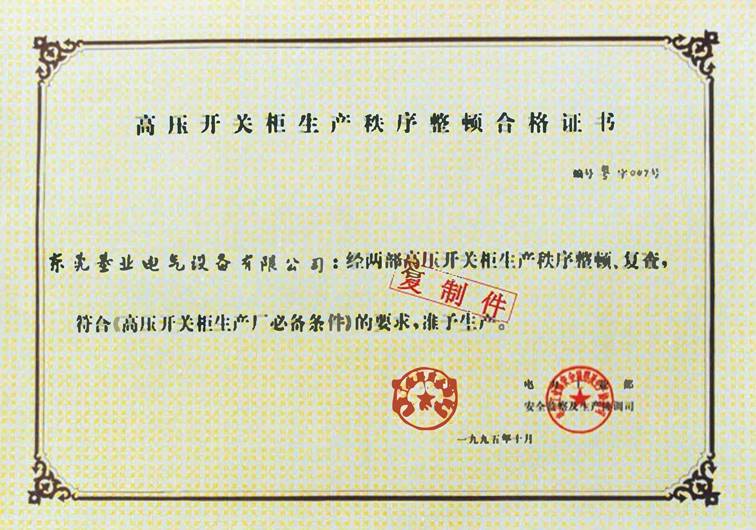 高压开关柜生产秩序整顿合格证书
编号 字047号
东莞基业电气设备有限公司：经两部高压开关柜生产秩序整顿、复查，
复制件
符合《高压开关柜生产厂必备条件》的要求，准予生产。
电力工业部
安全监察及生产协调司
一九九五年十月